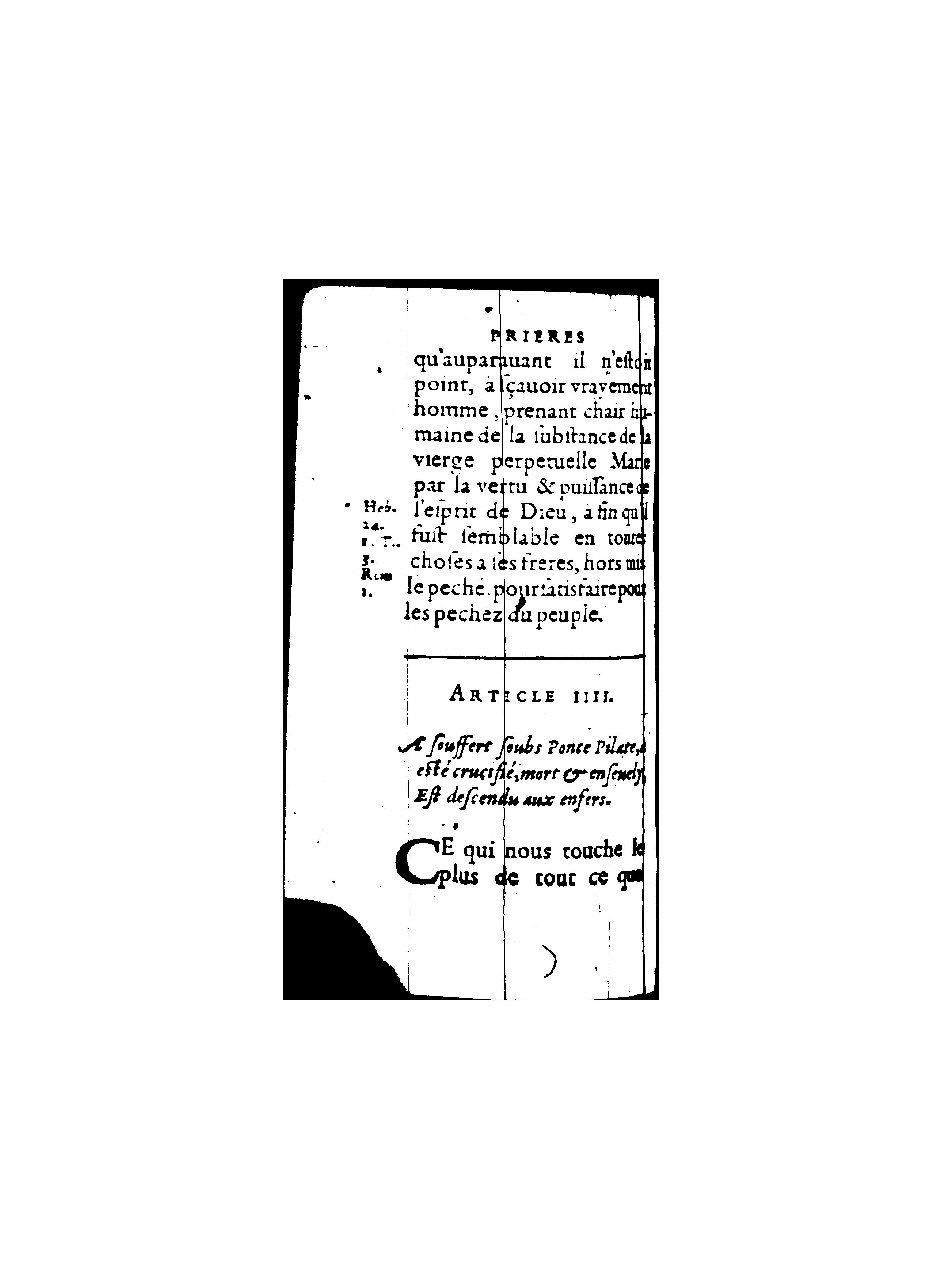 PRIERES
qu'auparauant il n'estoit
point, à sçauoir vrayement
homme, prenant chair hu-
maine de la substance de la
vierge perpetuelle Marie
par la vertu & puissance de
l'esprit de Dieu, afin qu'il
fust semblable en toutes
choses a ses freres, hors mis
le peché. pour satisfaire pour
les pechez du peuple.
Heb.
24.
1. T..
3.
Rom
1.
ARTICLE IIII.
A souffert soubs Ponce Pilate, a
esté crucifié, mort & enseuely,
Est descendu aux enfers.
CE qui nous touche le
plus de tout ce que